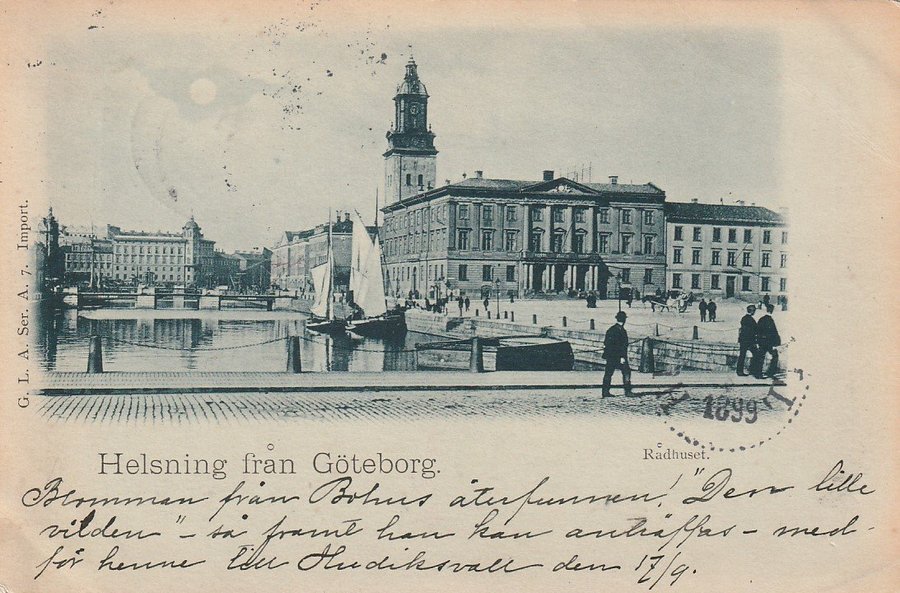 G. L. A. Ser. A. 7. Import.
1899
Helsning från Göteborg.
Rådhuset.
Blomman från Bohus återfunnen! "Den lille
vilden" – så framt han kan anträffas – med-
för henne till Hudiksvall den 17/9.